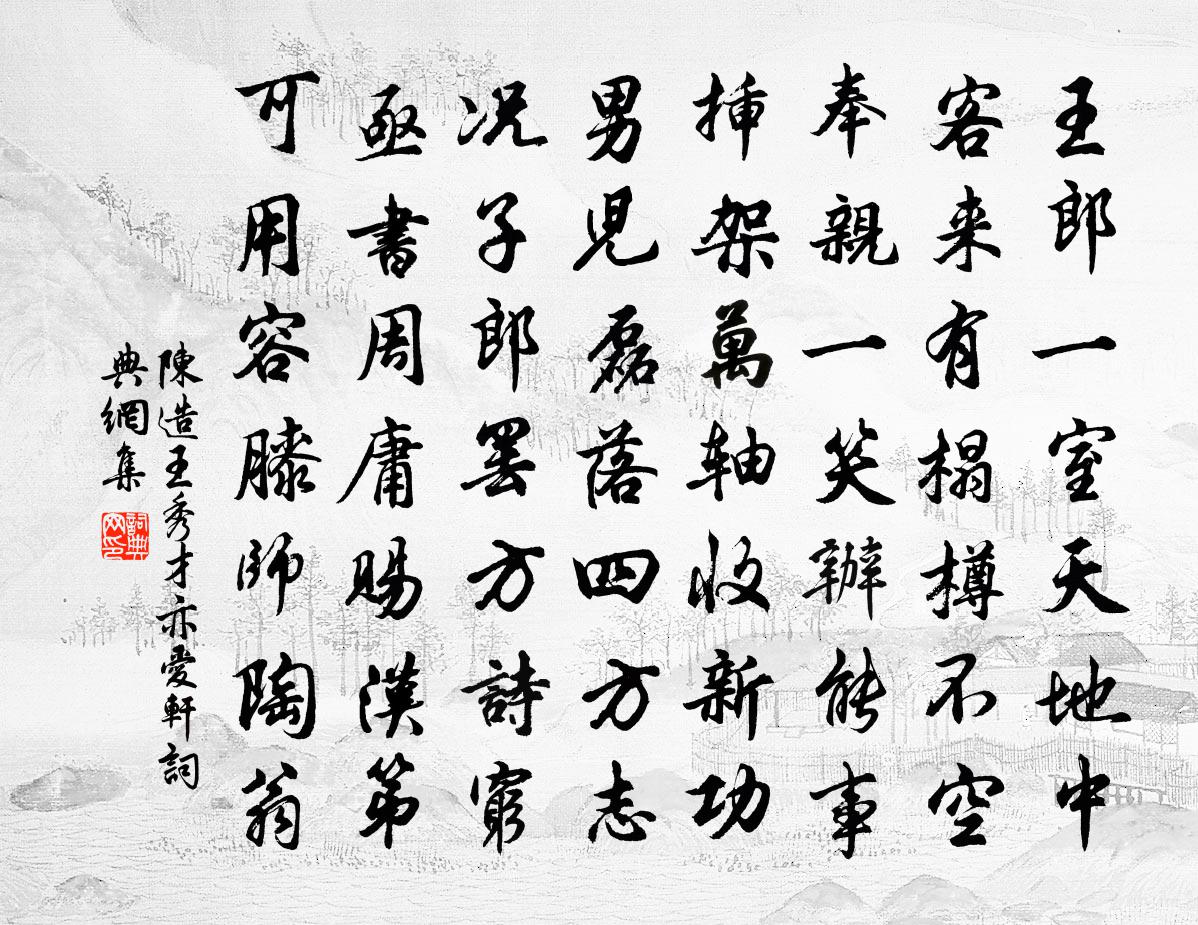 王郎一室天地中
客来有榻樽不空
奉親一笑辦能事
插架萬軸收新功
男児磊落四方志
况子郎罷方詩窮
亟書周庸賜漢第
可用容膝師陶翁
陳造王秀才亦愛軒詞
典網集
詞典网印